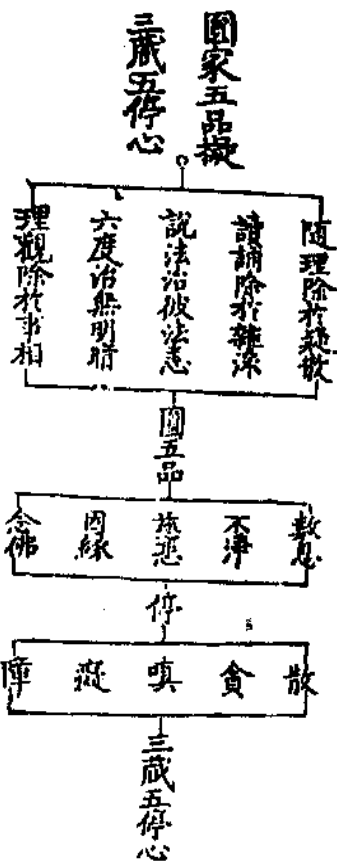 圓家五品擬
三藏五停心
隨理除於疑散
讀誦除於雜染
說法治彼法恚
六度治無明暗
理觀除於事相
圓五品
數息
不淨
慈悲
因緣
念佛
停
散
貪
嗔
癡
障
三藏五停心